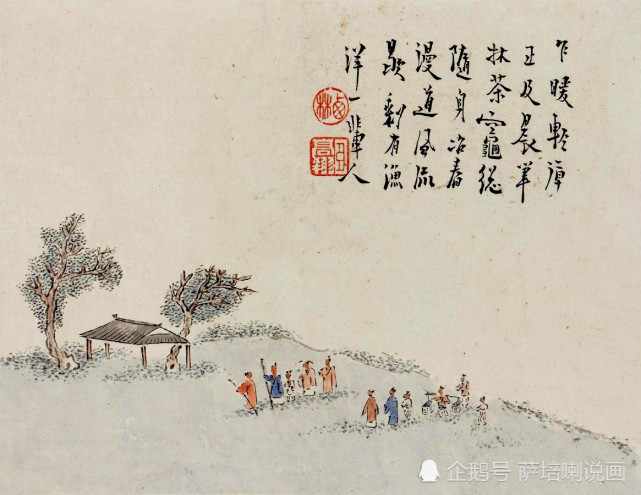 乍暖輕陰
正及晨筆
牀茶竈總
隨身冶春
漫道風流
歇剩有漁
洋一輩人
企鹅号 萨培喇说画